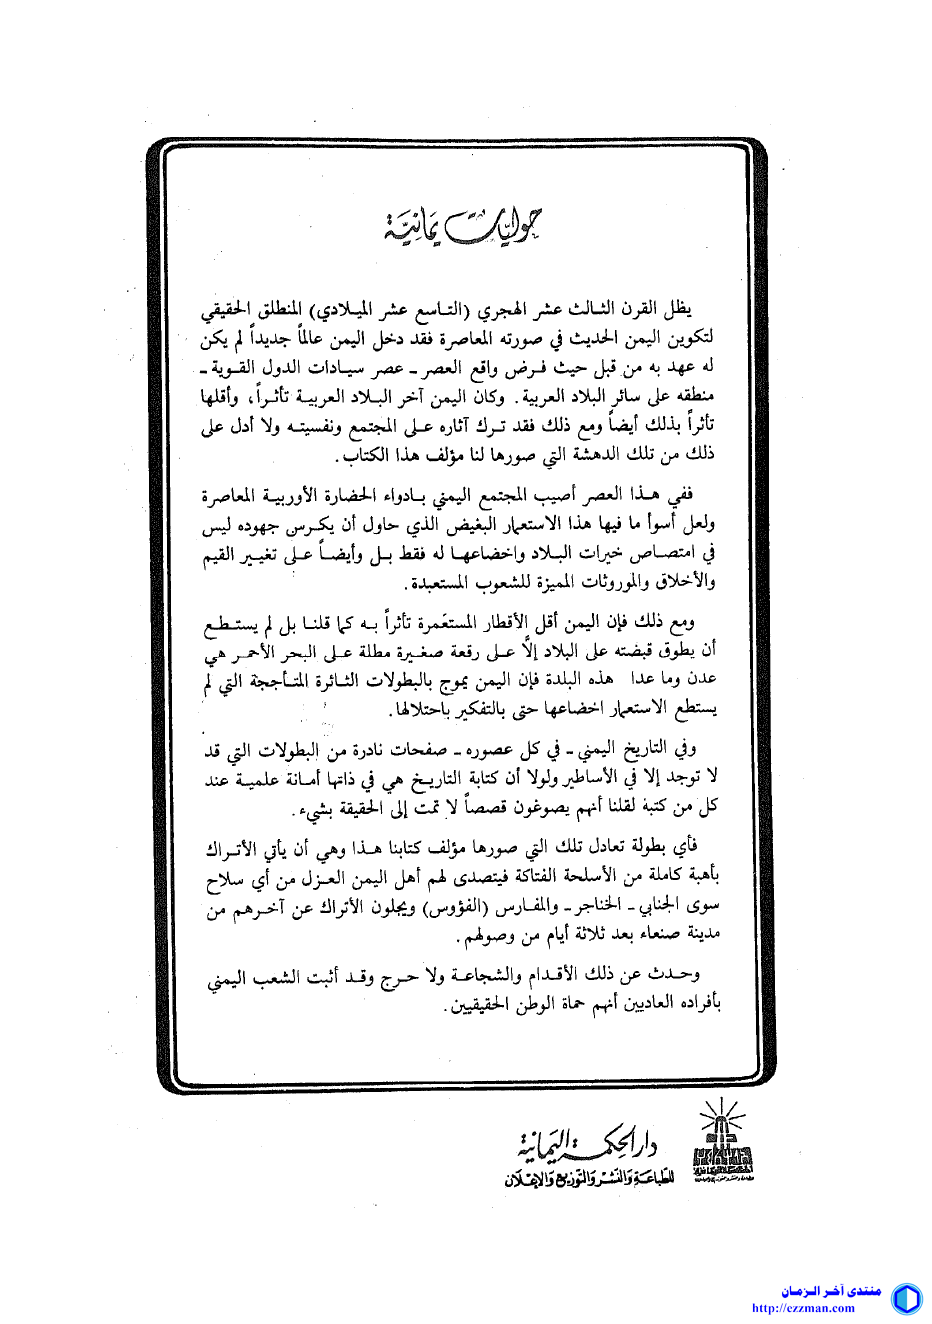 حوليات يمانية
يظل القرن الثالث عشر الهجري (التاسع عشر الميلادي) المنطلق الحقيقي
لتكوين اليمن الحديث في صورته المعاصرة فقد دخل اليمن عالماً جديداً لم يكن
له عهد به من قبل حيث فرض واقع العصر ـ عصر سيادات الدول القوية ـ
منطقه على سائر البلاد العربية. وكان اليمن آخر البلاد العربية تأثراً، وأقلها
تأثراً بذلك أيضاً ومع ذلك فقد ترك آثاره على المجتمع ونفسيته ولا أدل على
ذلك من تلك الدهشة التي صورها لنا مؤلف هذا الكتاب.
ففي هذا العصر أصيب المجتمع اليمني بادواء الحضارة الأوربية المعاصرة
ولعل أسوأ ما فيها هذا الاستعمار البغيض الذي حاول أن يكرس جهوده ليس
في امتصاص خيرات البلاد واخضاعها له فقط بل وأيضاً على تغيير القيم
والأخلاق والموروثات المميزة للشعوب المستعبدة.
ومع ذلك فإن اليمن أقل الأقطار المستعمرة تأثراً به كما قلنا بل لم يستطع
أن يطوق قبضته على البلاد إلاّ على رقعة صغيرة مطلة على البحر الأحمر هي
عدن وما عدا هذه البلدة فإن اليمن يموج بالبطولات الثائرة المتأججة التي لم
يستطع الاستعمار اخضاعها حتى بالتفكير باحتلالها.
وفي التاريخ اليمني ـ في كل عصوره ـ صفحات نادرة من البطولات التي قد
لا توجد إلا في الأساطير ولولا أن كتابة التاريخ هي في ذاتها أمانة علمية عند
كل من كتبه لقلنا أنهم يصوغون قصصاً لا تمت إلى الحقيقة بشيء.
فأي بطولة تعادل تلك التي صورها مؤلف كتابنا هذا وهي أن يأتي الأتراك
بأهبة كاملة من الأسلحة الفتاكة فيتصدى لهم أهل اليمن العزل من أي سلاح
سوى الجنابي ـ الخناجر ـ والمفارس (الفؤوس) ويجلون الأتراك عن آخرهم من
مدينة صنعاء بعد ثلاثة أيام من وصولهم.
وحدث عن ذلك الأقدام والشجاعة ولا حرج وقد أثبت الشعب اليمني
بأفراده العاديين أنهم حماة الوطن الحقيقيين.
دار الحكمة اليمانية
للطباعة والنشر والتوزيع والإعلان
منتدى آخر الزمان
http://ezzman.com